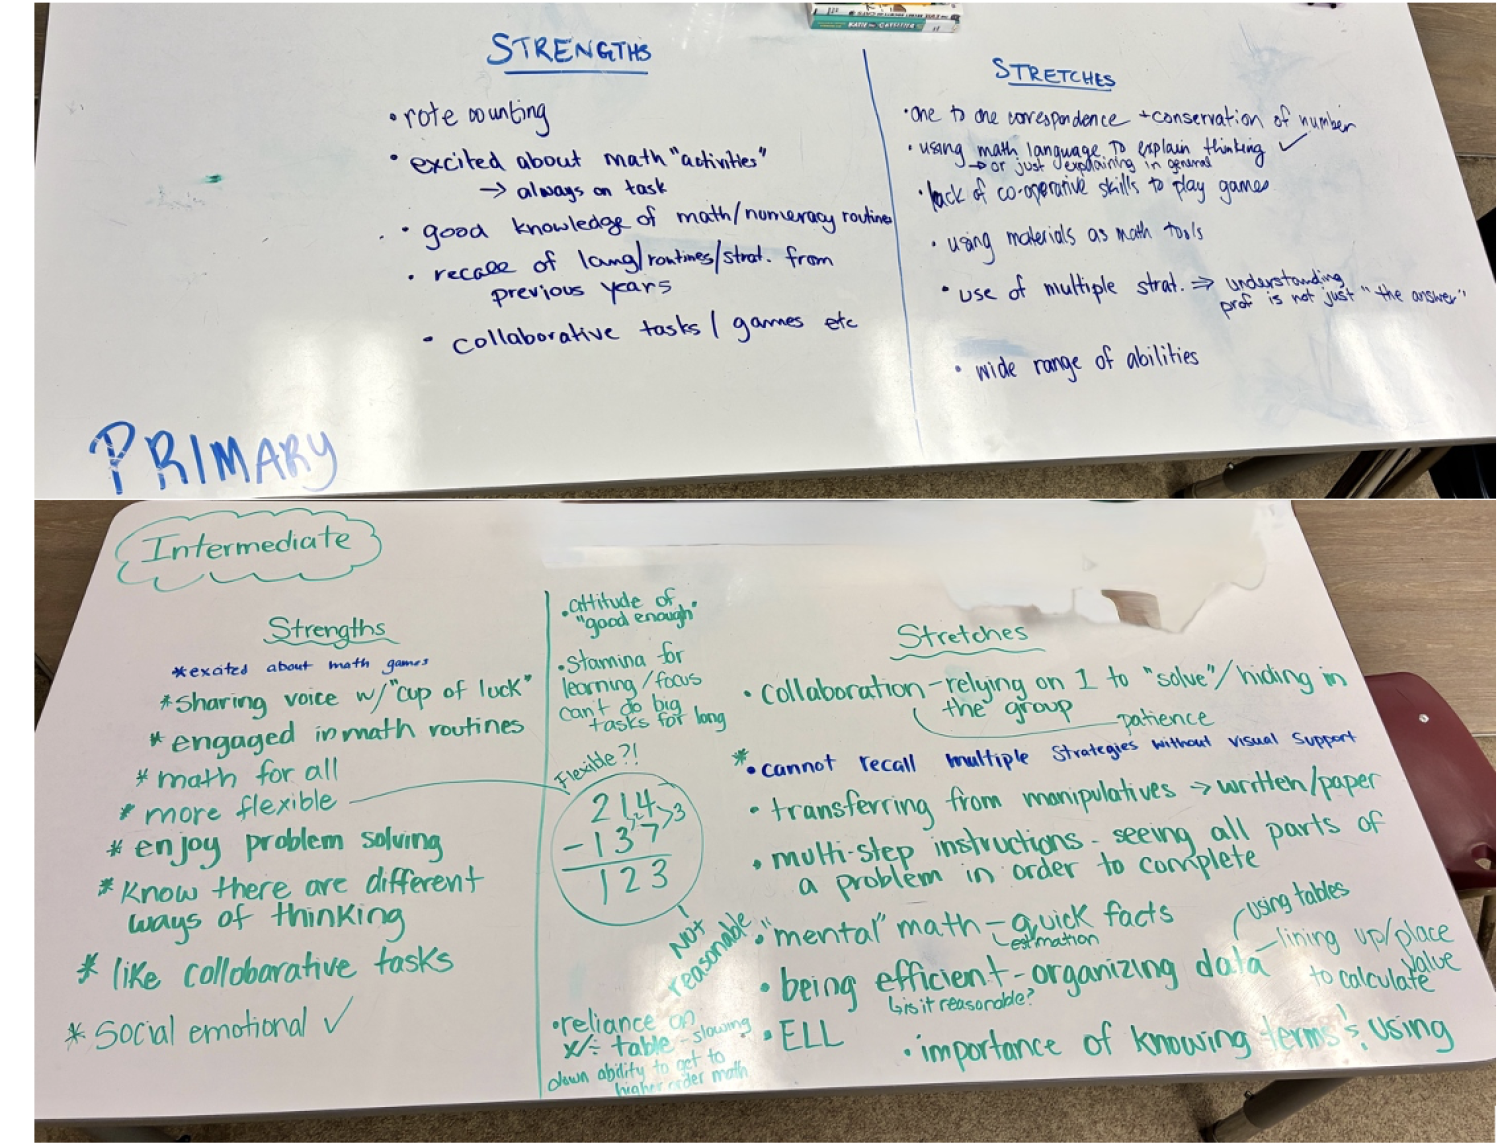 STRENGTHS
• rote counting
• excited about math "activities"
→ always on task
• good knowledge of math/numeracy routines
• recall of lang/routines/strat. from
previous years
• collaborative tasks / games etc
STRETCHES
• one to one correspondence + conservation of number
• using math language to explain thinking ✓
→ or just explaining in general
• lack of co-operative skills to play games
• using materials as math tools
• use of multiple strat. ⇒ understanding
prof is not just "the answer"
• wide range of abilities
PRIMARY
Intermediate
Strengths
* excited about math games
* Sharing voice w/"cup of luck"
* engaged in math routines
* math for all
* more flexible
* enjoy problem solving
* Know there are different
ways of thinking
* like collobarative tasks
* Social emotional ✓
• attitude of
"good enough"
• Stamina for
learning / focus
can't do big
tasks for long
Flexible?!
214
>3
- 137
123
Not
reasonable
• reliance on
x/÷ table - slowing
down ability to get to
higher order math
Stretches
• collaboration - relying on 1 to "solve"/hiding in
the group
patience
* • cannot recall multiple strategies without visual support
• transferring from manipulatives → written/paper
• multi-step instructions - seeing all parts of
a problem in order to complete
• "mental" math - quick facts
estimation
• being efficient - organizing data
using tables
lining up/place
value
to calculate
is it reasonable?
• ELL
• importance of knowing terms & using